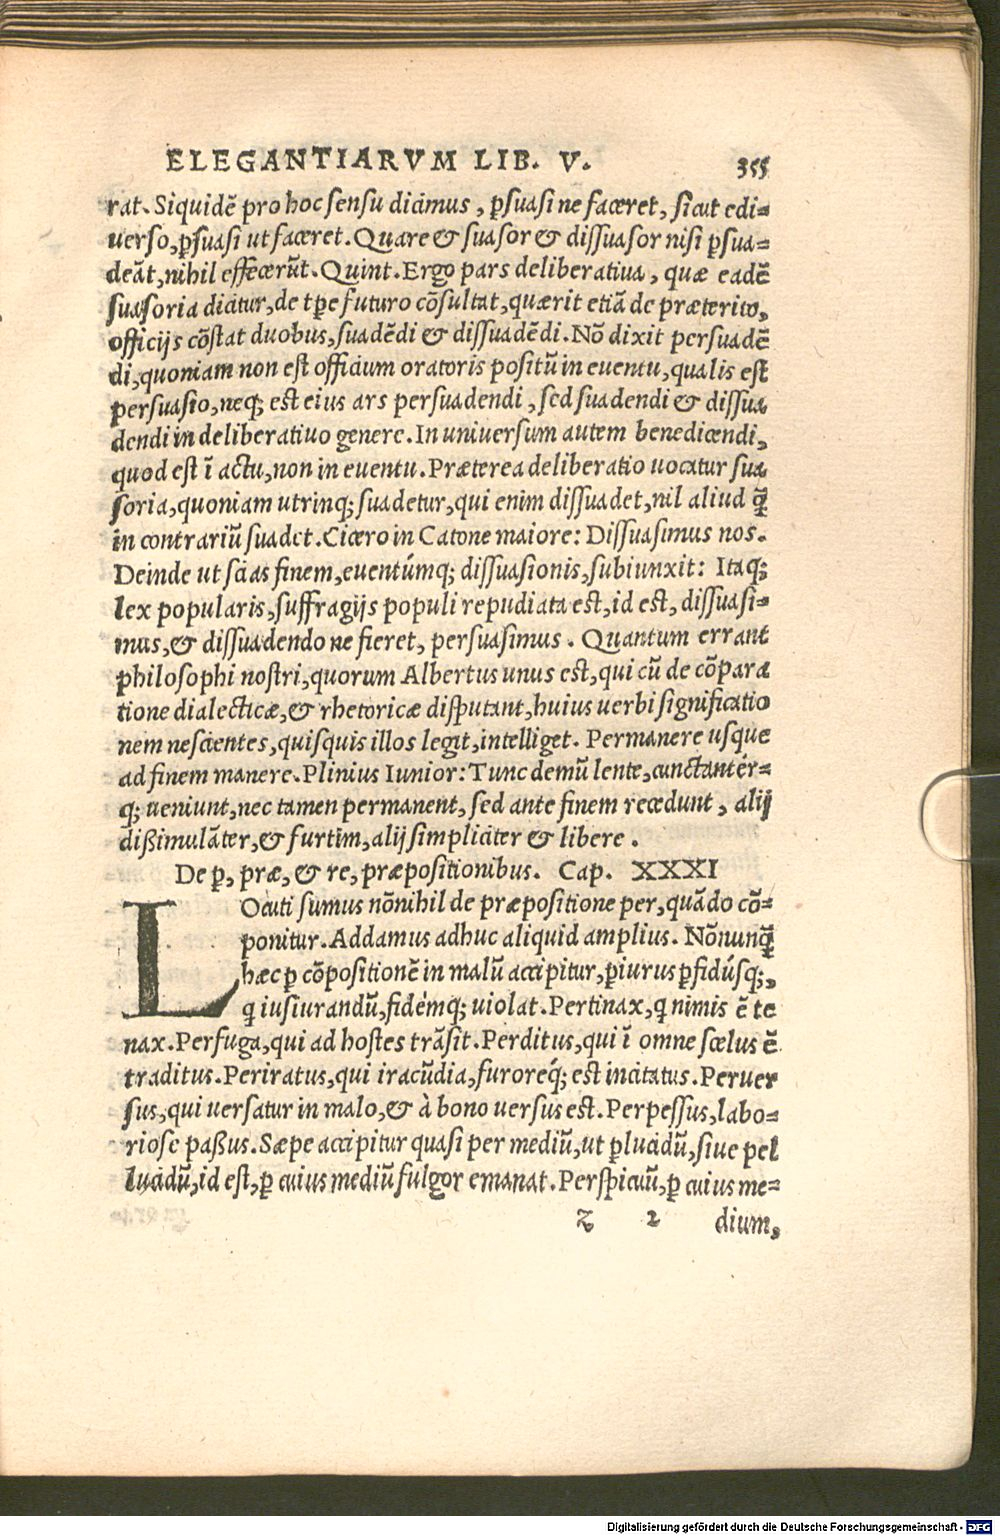 ELEGANTIARVM LIB. V. 355
rat. Siquidē pro hoc sensu dicimus, ꝑsuasi ne faceret, sicut edi-
uerso, ꝑsuasi ut faceret. Quare & suasor & dissuasor nisi ꝑsua-
deāt, nihil effecerūt. Quint. Ergo pars deliberatiua, quæ eadē
suasoria dicitur, de tꝑe futuro cōsultat, quærit etiā de præterito,
officijs cōstat duobus, suadēdi & dissuadēdi. Nō dixit persuadē
di, quoniam non est officium oratoris positū in euentu, qualis est
persuasio, neq; est eius ars persuadendi, sed suadendi & dissua
dendi in deliberatiuo genere. In uniuersum autem benedicendi,
quod est ī actu, non in euentu. Præterea deliberatio uocatur sua
soria, quoniam utrinq; suadetur, qui enim dissuadet, nil aliud q̄
in contrariū suadet. Cicero in Catone maiore: Dissuasimus nos.
Deinde ut scias finem, euentúmq; dissuasionis, subiunxit: Itaq;
lex popularis, suffragijs populi repudiata est, id est, dissuasi-
mus, & dissuadendo ne fieret, persuasimus. Quantum errant
philosophi nostri, quorum Albertus unus est, qui cū de cōpara
tione dialecticæ, & rhetoricæ disputant, huius uerbi significatio
nem nescientes, quisquis illos legit, intelliget. Permanere usque
ad finem manere. Plinius Iunior: Tunc demū lente, cunctantér-
q; ueniunt, nec tamen permanent, sed ante finem recedunt, alij
dißimulāter, & furtim, alij simpliciter & libere.
De ꝑ, præ, & re, præpositionibus. Cap. XXXI
LOcuti sumus nōnihil de præpositione per, quādo cō-
ponitur. Addamus adhuc aliquid amplius. Nōnunq̄
hæc ꝑ cōpositionē in malū accipitur, ꝑiurus ꝑfidúsq;,
q iusiurandū, fidémq; uiolat. Pertinax, q nimis ē te
nax. Perfuga, qui ad hostes trāsit. Perditus, qui ī omne scelus ē
traditus. Periratus, qui iracūdia, furoréq; est incitatus. Peruer
sus, qui uersatur in malo, & à bono uersus est. Perpessus, labo-
riose paßus. Sæpe accipitur quasi per mediū, ut ꝑlucidū, siue pel
lucidū, id est, ꝑ cuius mediū fulgor emanat. Perspicuū, ꝑ cuius me-
z 2 dium,
Digitalisierung gefördert durch die Deutsche Forschungsgemeinschaft - DFG